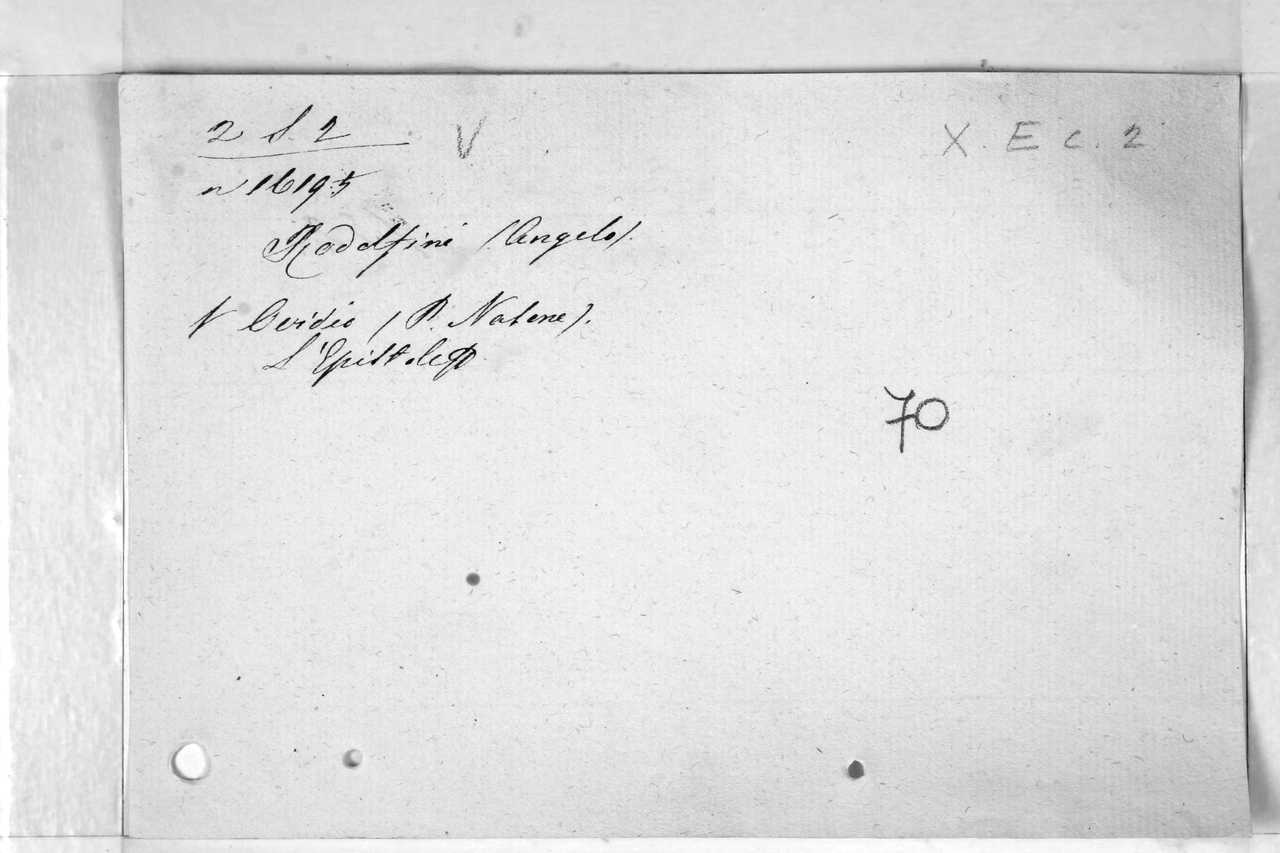 2 S. 2 V X. E c. 2
n 16195
Rodolfini (Angelo).
V Ovidio (P. Nasone).
L'Epistole
70